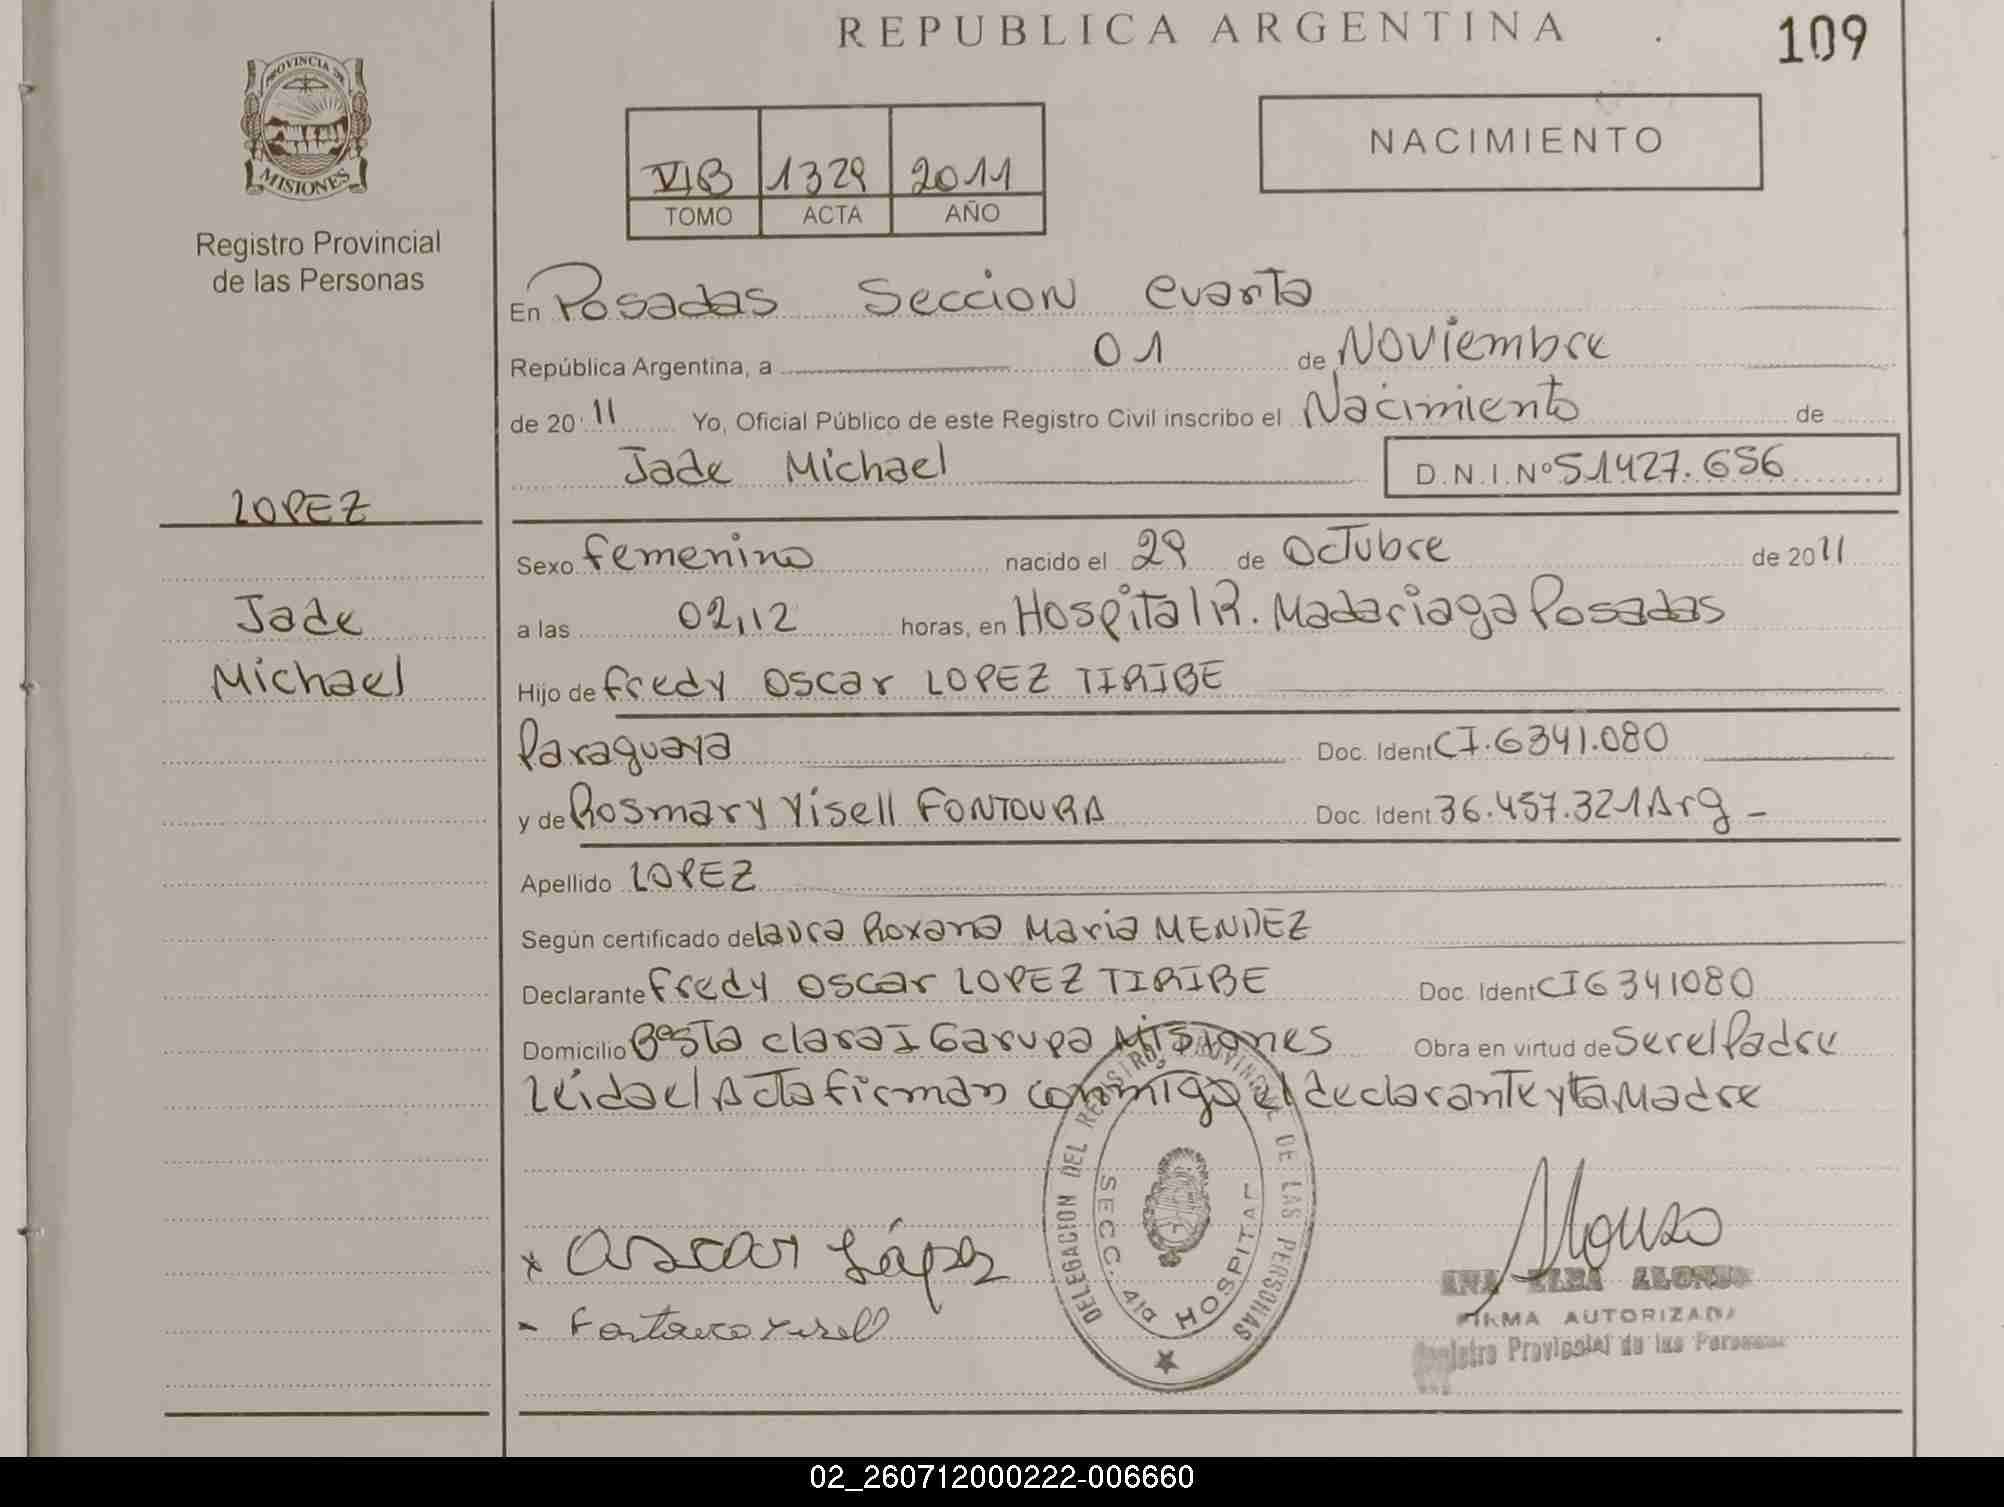 REPUBLICA ARGENTINA
109
PROVINCIA DE
MISIONES
Registro Provincial
de las Personas
VIB 1329 2011
TOMO ACTA AÑO
NACIMIENTO
En Posadas Seccion cuarta
República Argentina, a 01 de Noviembre
de 2011 Yo, Oficial Público de este Registro Civil inscribo el Nacimiento de
Jade Michael D.N.I.Nº 51427.656
LOPEZ
Jade
Michael
Sexo femenino nacido el 29 de Octubre de 2011
a las 02,12 horas, en Hospital R. Madariaga Posadas
Hijo de fredy oscar LOPEZ TIRIBE
Paraguaya Doc. Ident CI.6341.080
y de Rosmary Yisell FONTOURA Doc. Ident 36.457.321 Arg -
Apellido LOPEZ
Según certificado de Laura Roxana Maria MENDEZ
Declarante fredy oscar LOPEZ TIRIBE Doc. Ident CI6341080
Domicilio Bosta clara I Garupa Misiones Obra en virtud de ser el Padre
Leida el Acta firman conmigo el declarante y la Madre
DELEGACION DEL REGISTRO PROVINCIAL DE LAS PERSONAS
SECC. 4ta HOSPITAL
x oscar López
- Yisell
Alonso
ANA ELBA ALONSO
FIRMA AUTORIZADA
Registro Provincial de las Personas
02_260712000222-006660